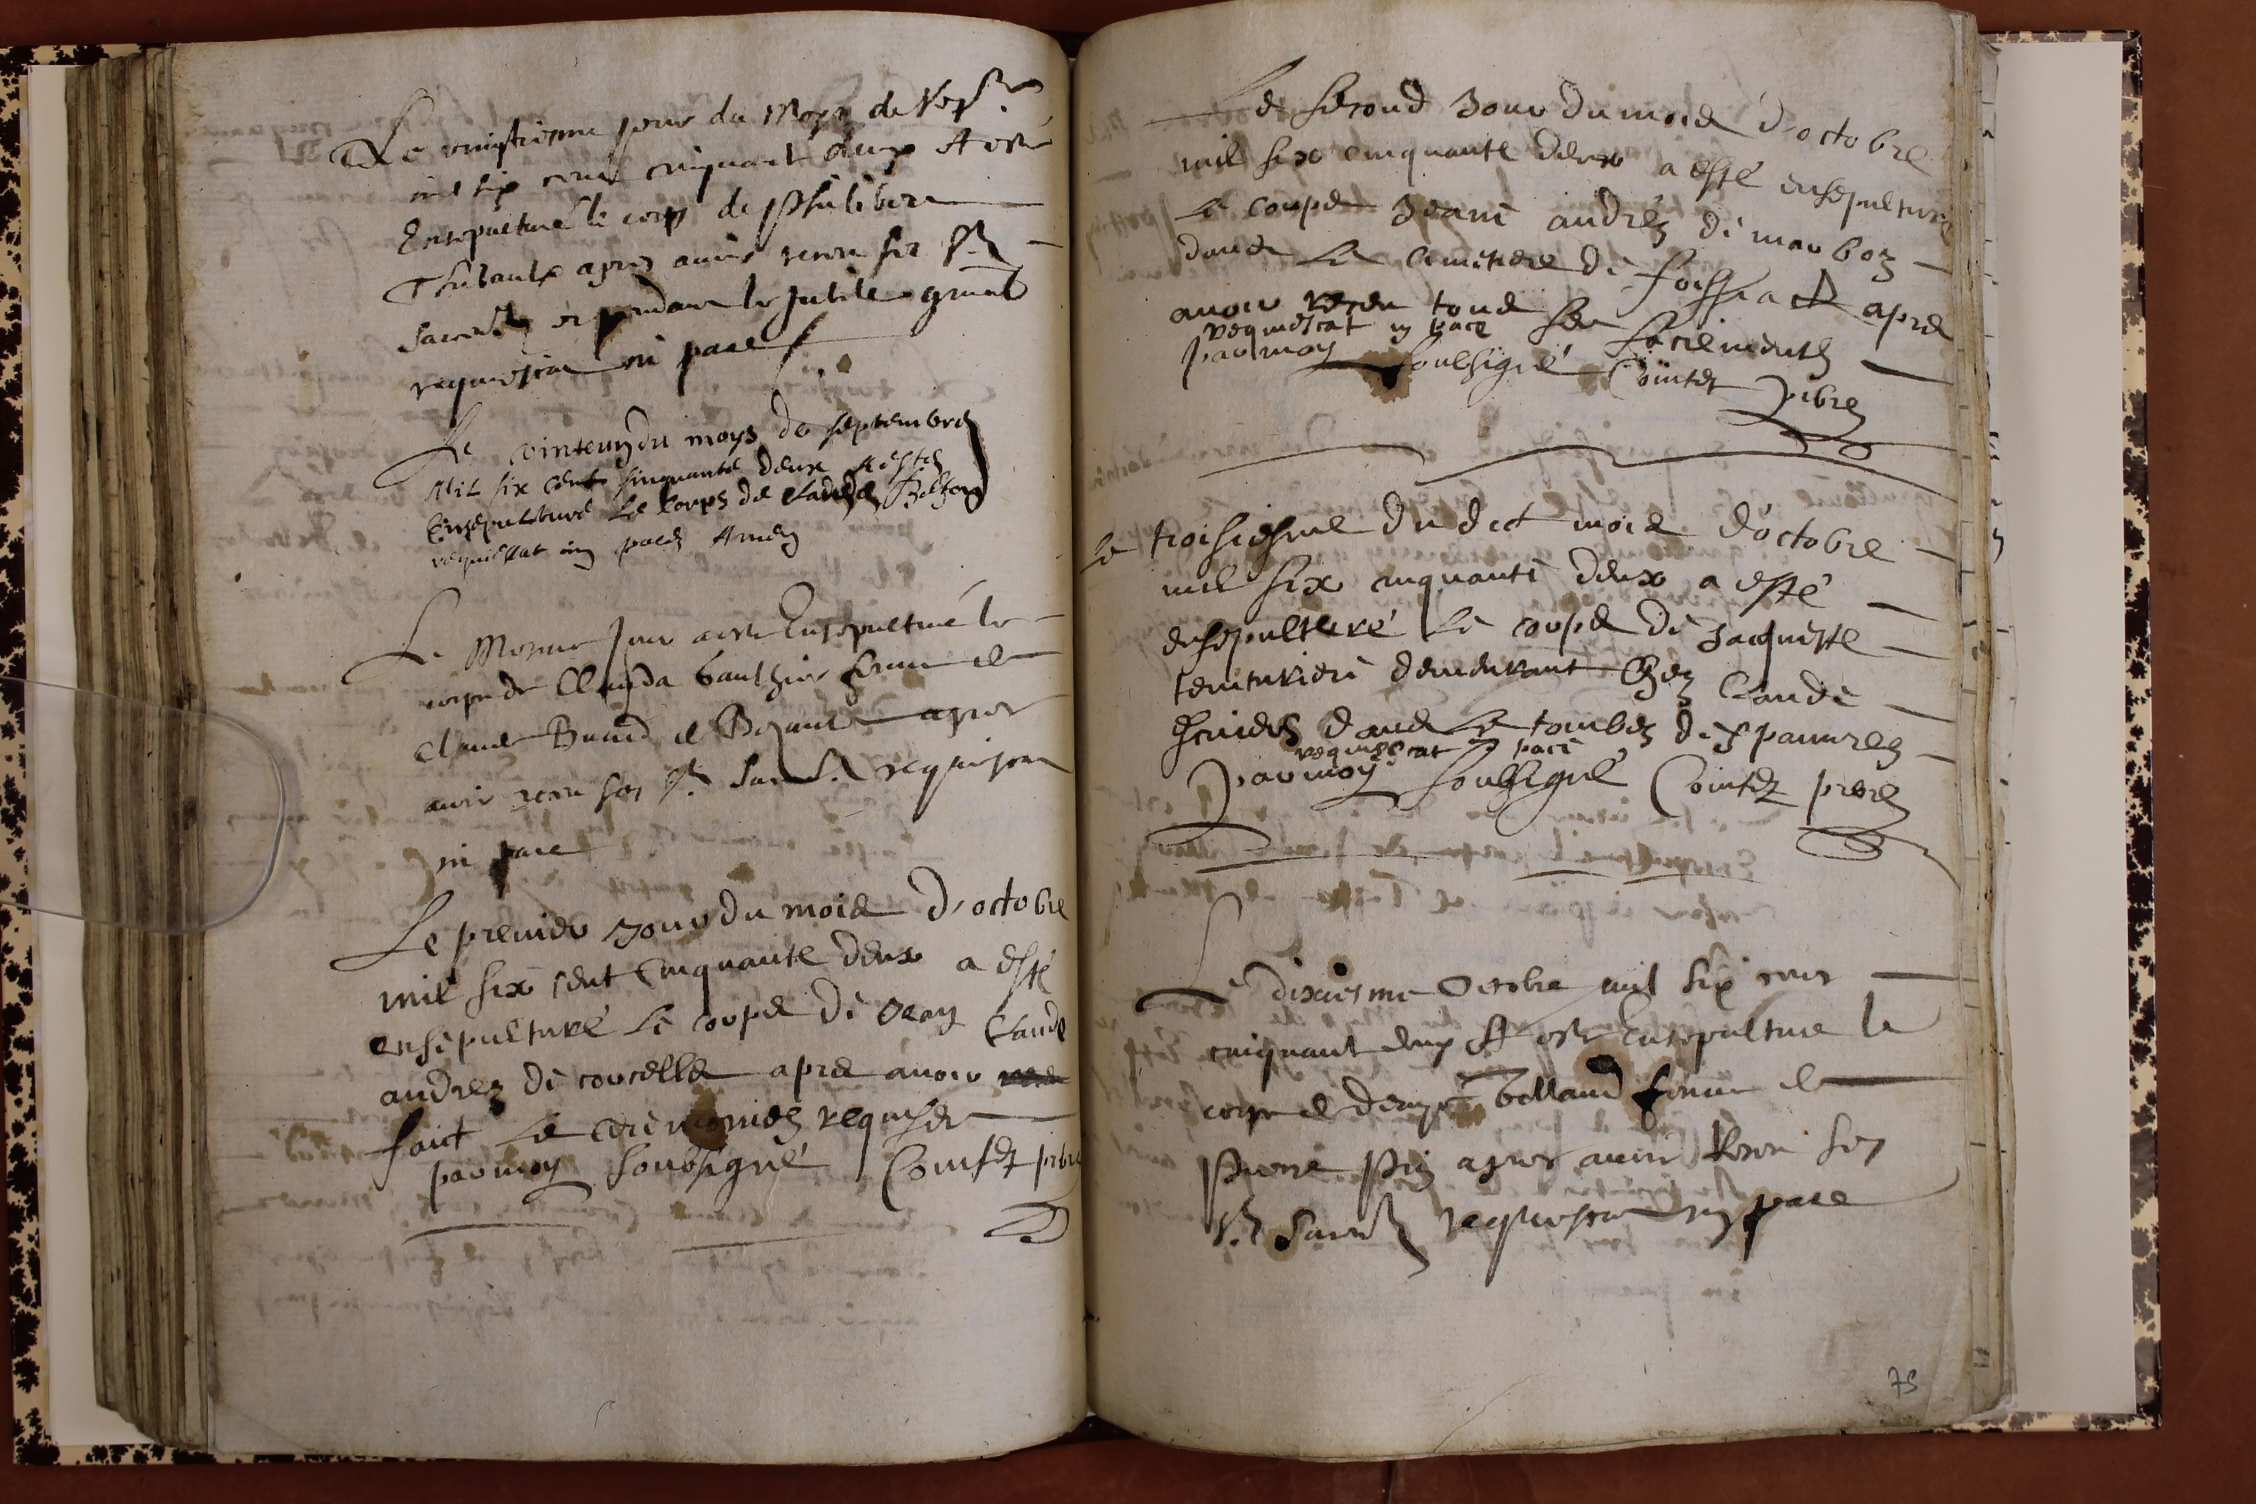 Le vingtiesme jour du moys de 7bre
mil six cent cinquante deux A esté
Ensepulturé le corps de Philibert
Thibault apres avoir receu ses Sts
Sacrts et pendant le Jubilé grand
requiescat in pace
Le vinteung du moys de septembre
Mil six cent sinquante deux A esté
Ensepulturé Le Corps de Claude
requiescat in pace Amen
Le Mesme Jour a esté Ensepulturé le
corps de Clauda Gauthier femme de
Claude Buard de apres
avoir receu ses Sts Sacrts requiescat
in pace
Le premier Jour du mois d'octobre
mil six cent Cinquante deux a esté
ensepulturé Le corps de Claude
andrez de corcelle apres avoir
faict Les ceremonies requises
par moy soubsigné Cointet pbre
Le second Jour du mois d'octobre
mil six cinquante deux a esté ensepulturé
Le corps Jeane andrez de marboz
dans Le Cimetiere de foissiact apres
avoir receu tous ses sacrements
requiescat in pace
par moy soubsigné Cointet pbre
Le troisiesme du dict mois d'octobre
mil six cinquante deux a esté
ensepulturé Le corps de Jacquette
teinturiere demeurant Chez Claude
dans Le tombez des pauvres
requiescat in pace
par moy soubsigné Cointet pbre
Le dixiesme Octobre mil six cent
cinquant deux A esté Ensepulturé le
corps de denyse Volland femme de
Pierre apres avoir Receu ses
Sts Sacrts requiescat in pace
75